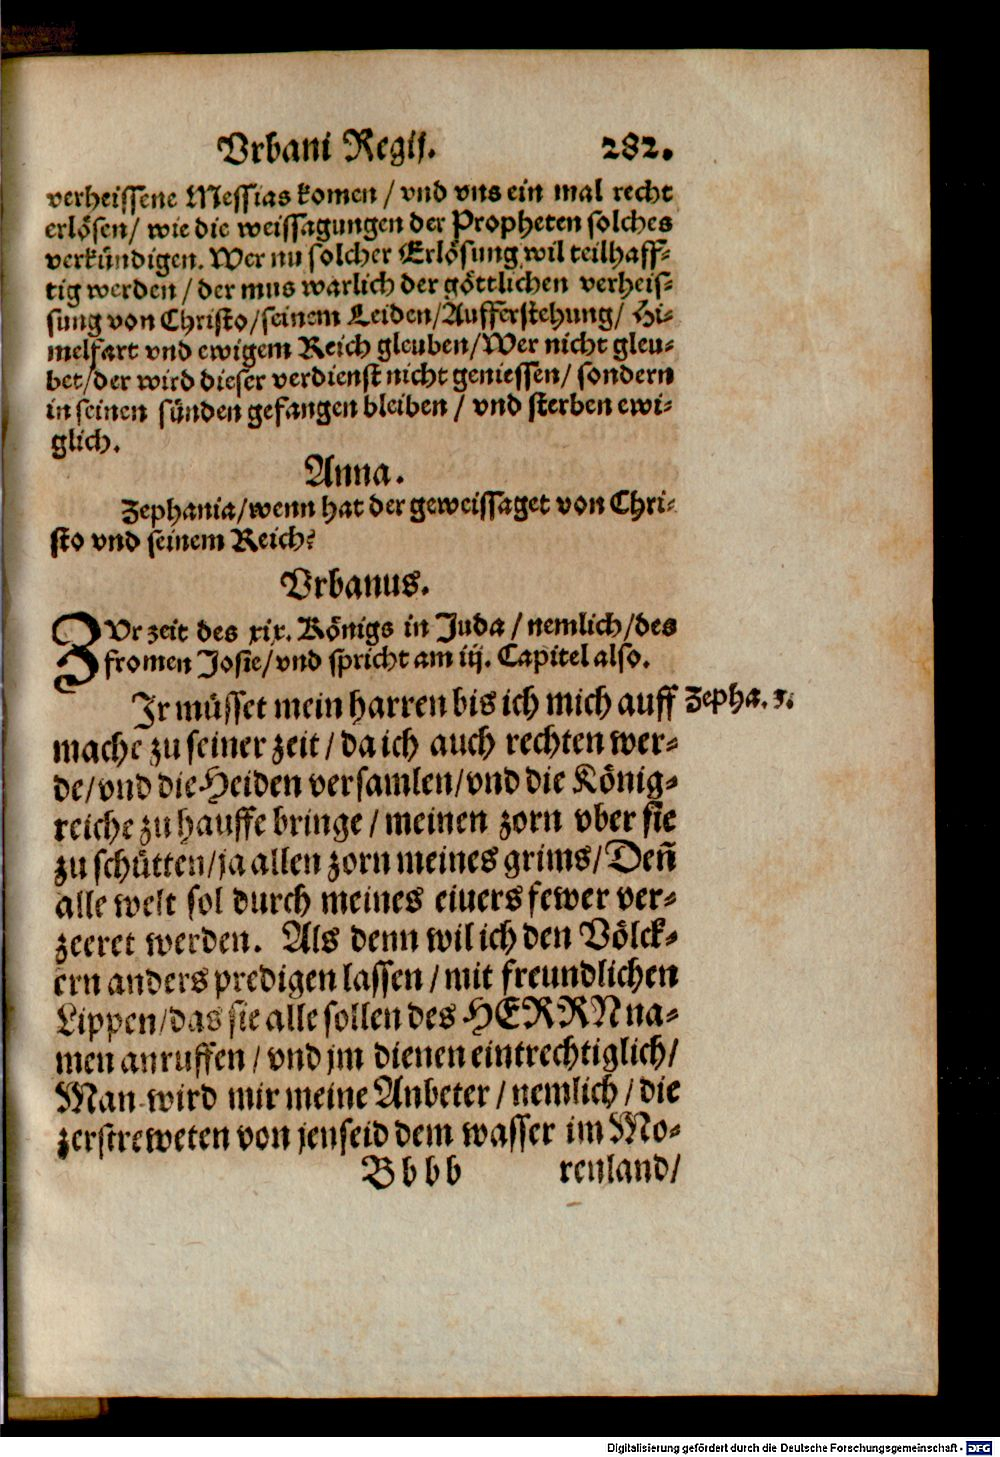 Vrbani Regij. 282.
verheissene Messias komen / vnd vns ein mal recht
erlösen / wie die weissagungen der Propheten solches
verkündigen. Wer nu solcher Erlösung wil teilhaff-
tig werden / der mus warlich der göttlichen verheis-
sung von Christo / seinem Leiden / Aufferstehung / Hi-
melfart vnd ewigem Reich gleuben / Wer nicht gleu-
bet / der wird dieser verdienst nicht geniessen / sondern
in seinen sünden gefangen bleiben / vnd sterben ewi-
glich.
Anna.
Zephania / wenn hat der geweissaget von Chri-
sto vnd seinem Reich?
Vrbanus.
ZVr zeit des xix. Königs in Juda / nemlich / des
fromen Josie / vnd spricht am iij. Capitel also.
Ir müsset mein harren bis ich mich auff Zepha. 3.
mache zu seiner zeit / da ich auch rechten wer-
de / vnd die Heiden versamlen / vnd die König-
reiche zu hauffe bringe / meinen zorn vber sie
zu schütten / ja allen zorn meines grims / Deñ
alle welt sol durch meines eiuers fewer ver-
zeeret werden. Als denn wil ich den Völck-
ern anders predigen lassen / mit freundlichen
Lippen / das sie alle sollen des HERRN na-
men anruffen / vnd jm dienen eintrechtiglich /
Man wird mir meine Anbeter / nemlich / die
zerstreweten von jenseid dem wasser im Mo-
B b b b renland /
Digitalisierung gefördert durch die Deutsche Forschungsgemeinschaft - DFG